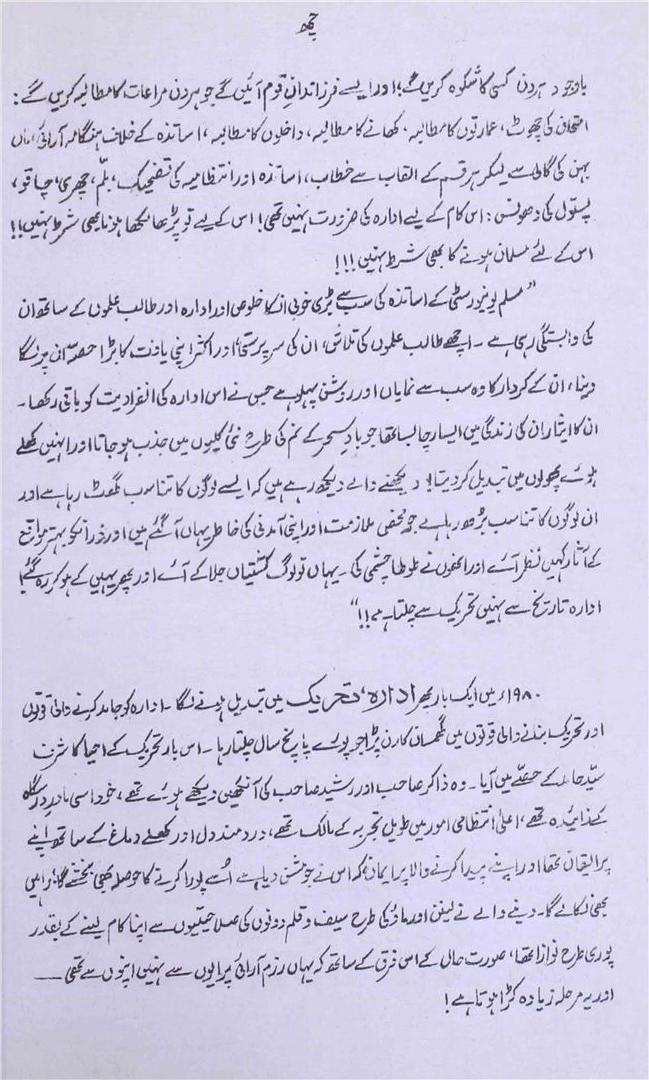 چھ
باوجود ہر دن کسی کا شکوہ کریں گے؛ اور ایسے فرزاندانِ قوم آئیں گے جو ہر دن مراعات کا مطالبہ کریں گے:
امتحان کی چھوٹ، عمارتوں کا مطالبہ، کھانے کا مطالبہ، داخلوں کا مطالبہ، اساتذہ کے خلاف ہنگامہ آرائی، ماں
بہن کی گالی سے لیکر ہر قسم کے القاب سے خطاب، اساتذہ اور انتظامیہ کی تضحیک، بلّم، چھری، چاقو،
پستول کی دھونس: اس کام کے لیے ادارہ کی ضرورت نہیں تھی! اس کے لیے تو پڑھا لکھا ہونا بھی شرط نہیں!!
اس کے لئے مسلمان ہونے کا بھی شرط نہیں!!!
”مسلم یونیورسٹی کے اساتذہ کی سب سے بڑی خوبی ان کا خلوص اور ادارہ اور طالب علموں کے ساتھ ان
کی وابستگی رہی ہے۔ اچھے طالب علموں کی تلاش، ان کی سرپرستی اور اکثر اپنی یافت کا بڑا حصہ ان پر لگا
دینا، ان کے کردار کا وہ سب سے نمایاں اور روشن پہلو ہے جس نے اس ادارہ کی انفرادیت کو باقی رکھا۔
ان کا ایثار ان کی زندگی میں ایسا رچا بسا تھا جو بادِ سحر کے نم کی طرح نئی کلیوں میں جذب ہو جاتا اور انہیں کھلے
ہوئے پھولوں میں تبدیل کر دیتا! دیکھنے والے دیکھ رہے ہیں کہ ایسے لوگوں کا تناسب گھٹ رہا ہے اور
ان لوگوں کا تناسب بڑھ رہا ہے جو محض ملازمت اور اپنی آمدنی کی خاطر یہاں آ گئے ہیں اور ذرا سے کو بہتر مواقع
کے آثار کہیں نظر آئے اور انھوں نے طوطا چشمی کی۔ یہاں تو لوگ کشتیاں جلا کے آئے اور پھر یہیں کے ہو کر رہ گئے!
ادارہ تاریخ سے نہیں تحریک سے چلتا ہے!!“
۱۹۸۰ء میں ایک بار پھر ادارہ، تحریک میں تبدیل ہونے لگا۔ ادارہ کو جامد کرنے والی قوتوں
اور تحریک بنانے والی قوتوں میں گھمسان کا رن پڑا جو پورے پانچ سال چلتا رہا۔ اس بار تحریک کے احیا کا شرف
سیّد حامد کے حصّے میں آیا۔ وہ ذاکر صاحب اور رشید صاحب کی آنکھیں دیکھے ہوئے تھے، خود اسی مادرِ درسگاہ
کے زائیدہ تھے، اعلیٰ انتظامی امور میں طویل تجربہ کے مالک تھے، دردمند دل اور کھلے دماغ کے ساتھ اپنے
پر ایقان تھا اور اپنے پیدا کرنے والا پر ایمان کہ اس نے جو مشن دیا ہے اُسے پورا کرنے کا حوصلہ بھی بخشے گا؛ راہیں
بھی نکالے گا۔ دینے والے نے لینن اور ماؤ کی طرح سیف و قلم دونوں کی صلاحیتوں سے اپنا کام لینے کے بقدر
پوری طرح نوازا تھا، صورت حال کے اس فرق کے ساتھ کہ یہاں رزم آرائی پرایوں سے نہیں اپنوں سے تھی —
اور یہ مرحلہ زیادہ کڑا ہوتا ہے!